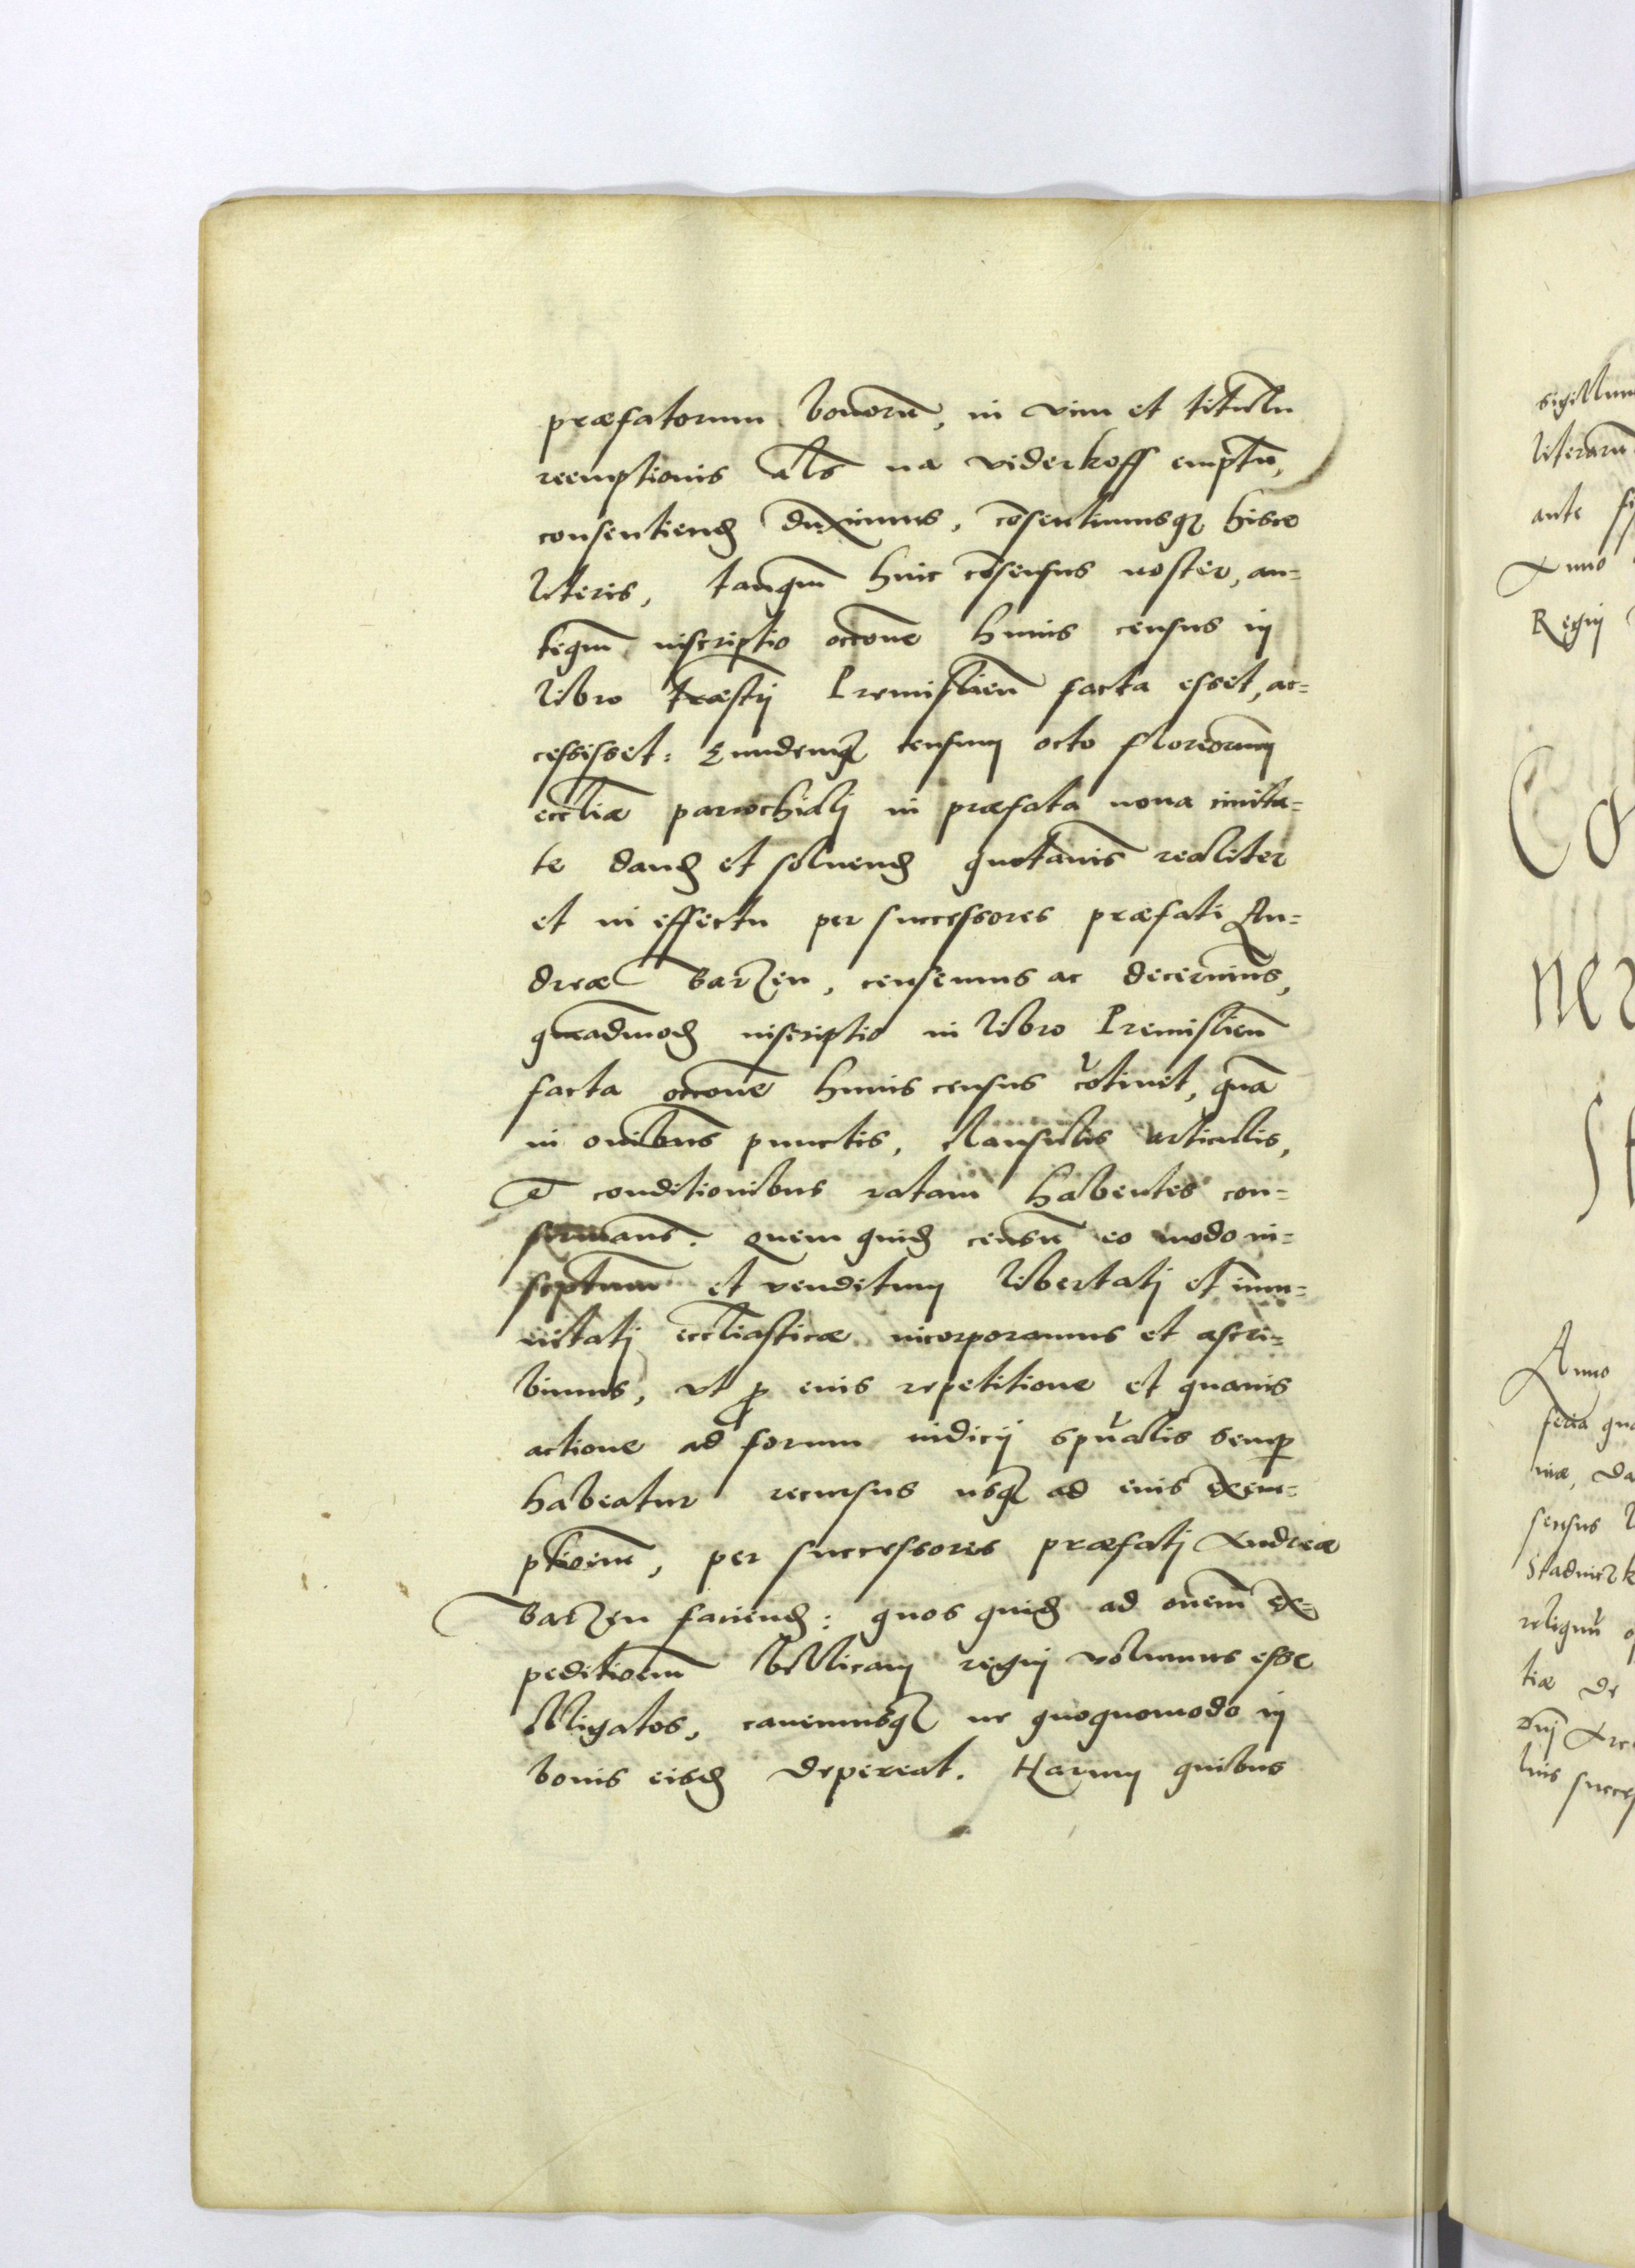 præfatorum bonorū, in vim et titulū
reemptionis als̄ na viderkoff emptū,
consentiend duximus, cōsentimusq3 hisce
literis, tanqm̄ huic cōsensus noster, an=
teqm̄ inscriptio occōne huius census in
libro træstrij Premisliēn facta esset, ac=
cessisset: Eundemq3 censum octo florenorum
eccl̄iæ parrochialj in præfata noua ciuita=
te dand et soluend quotānis realiter
et in effectu per successores præfati An=
dreæ Barzen, censemus ac decernim̄s,
queadmod inscriptio in libro Premisliēn
facta occōne huius census cōtinet, quā
in om̄ibus punctis, clausulis articulis,
et conditionibus ratam habentes con=
firmam̄s. Quem quid censū eo modo in=
scptum et venditum libertatj et im̄u=
nitatj eccl̄iasticæ incorporamus et ascri=
bimus, vt p eius repetitione et quauis
actione ad forum iudicij spūalis semp
habeatur recursus usq3 ad eius exem=
ptioēm, per successores præfatj Andreæ
Barzen faciend: quos quid ad om̄em ex=
peditioēm bellicam regnj volumus esse
obligatos, cauemusq3 ne quoquomodo in
bonis eisd depereat. Harum quibus
sigillum
literarū
ante
Anno
Regnj
Co
ner
St
Anno
feria
næ, da
sensus
Stadnicz
reliquū
tiæ de
Dnj